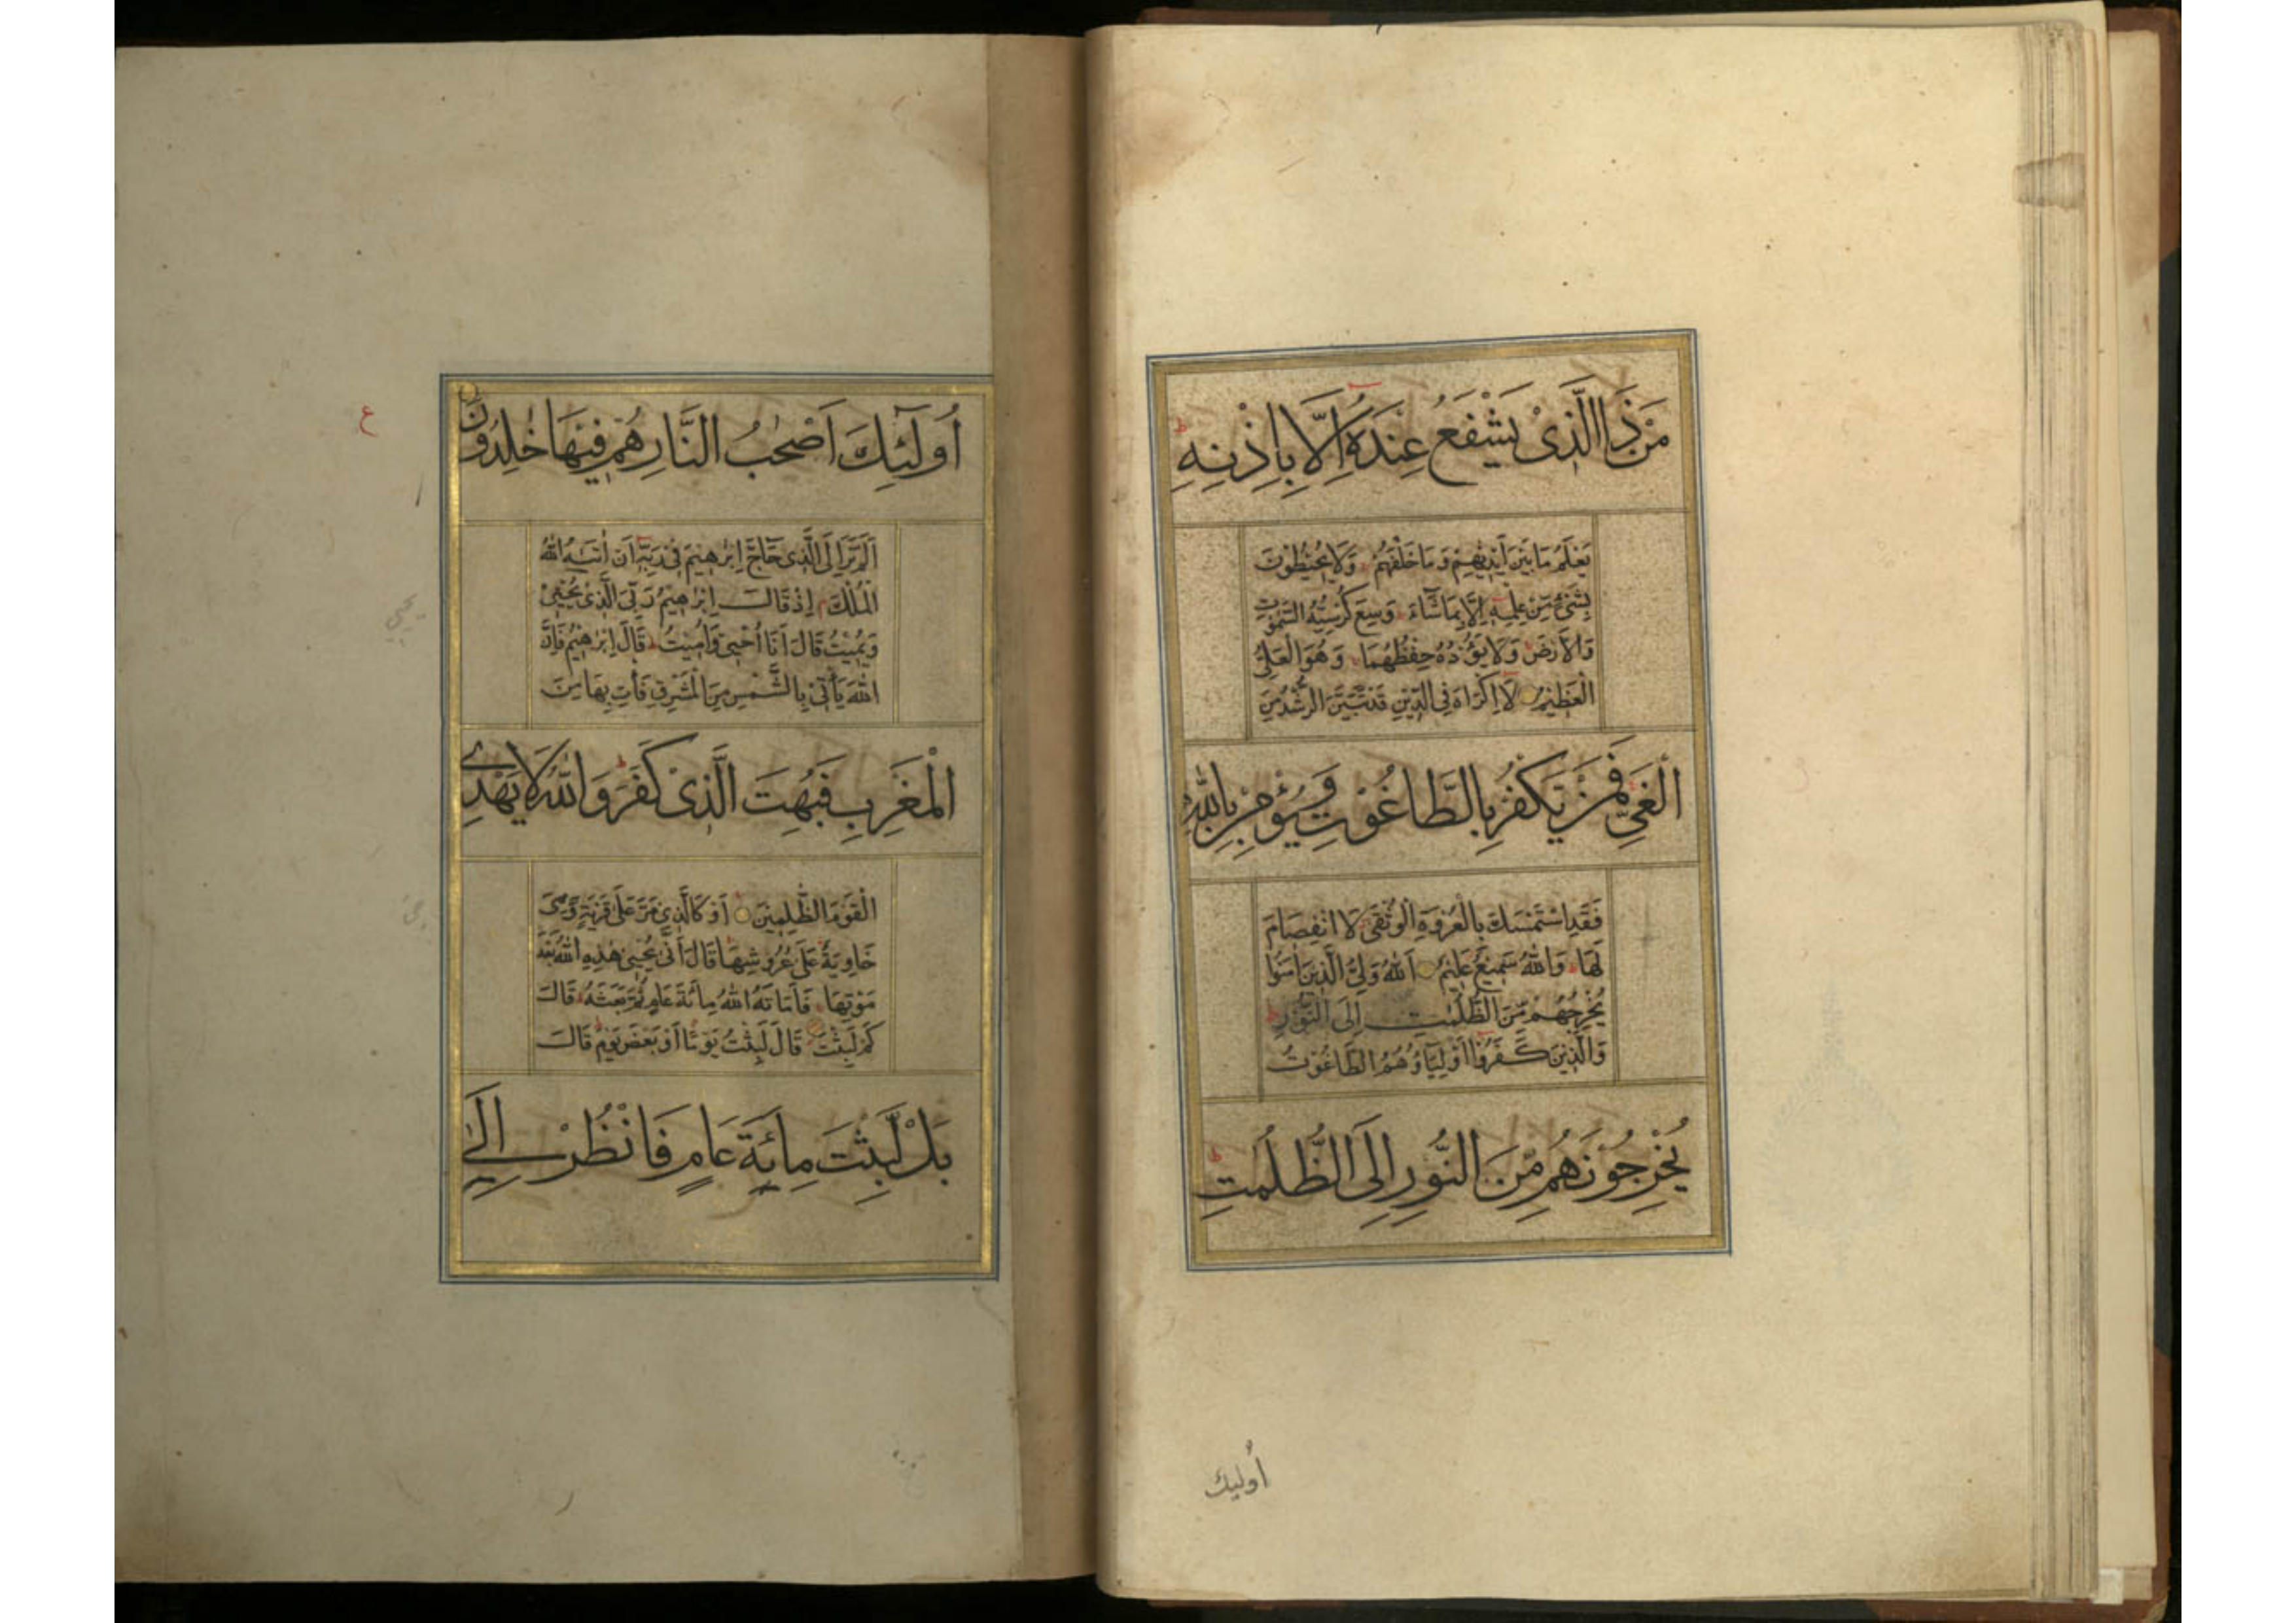 مَنْ ذَا الَّذِىْ يَشْفَعُ عِنْدَهُ اِلَّا بِاِذْنِهِ
يَعْلَمُ مَا بَيْنَ اَيْدِيْهِمْ وَمَا خَلْفَهُمْ وَلَا يُحِيْطُوْنَ
بِشَىْءٍ مِنْ عِلْمِهِ اِلَّا بِمَا شَآءَ وَسِعَ كُرْسِيُّهُ السَّمٰوٰتِ
وَالْاَرْضَ وَلَا يَؤُدُهُ حِفْظُهُمَا وَهُوَ الْعَلِىُّ
الْعَظِيْمُ لَا اِكْرَاهَ فِى الدِّيْنِ قَدْ تَبَيَّنَ الرُّشْدُ مِنَ
الْغَىِّ فَمَنْ يَكْفُرْ بِالطَّاغُوْتِ وَيُؤْمِنْ بِاللّٰهِ
فَقَدِ اسْتَمْسَكَ بِالْعُرْوَةِ الْوُثْقٰى لَا انْفِصَامَ
لَهَا وَاللّٰهُ سَمِيْعٌ عَلِيْمٌ اَللّٰهُ وَلِىُّ الَّذِيْنَ اٰمَنُوْا
يُخْرِجُهُمْ مِنَ الظُّلُمٰتِ اِلَى النُّوْرِ
وَالَّذِيْنَ كَفَرُوْا اَوْلِيَآؤُهُمُ الطَّاغُوْتُ
يُخْرِجُوْنَهُمْ مِنَ النُّوْرِ اِلَى الظُّلُمٰتِ
أوليك
اُولٰٓئِكَ اَصْحٰبُ النَّارِ هُمْ فِيْهَا خٰلِدُوْنَ
ع
اَلَمْ تَرَ اِلَى الَّذِى حَآجَّ اِبْرٰهِيْمَ فِىْ رَبِّهٖ اَنْ اٰتٰىهُ اللّٰهُ
الْمُلْكَ اِذْ قَالَ اِبْرٰهِيْمُ رَبِّىَ الَّذِىْ يُحْيِىْ
وَيُمِيْتُ قَالَ اَنَا اُحْيِى وَاُمِيْتُ قَالَ اِبْرٰهِيْمُ فَاِنَّ
اللّٰهَ يَأْتِىْ بِالشَّمْسِ مِنَ الْمَشْرِقِ فَأْتِ بِهَا مِنَ
الْمَغْرِبِ فَبُهِتَ الَّذِىْ كَفَرَ وَاللّٰهُ لَا يَهْدِى
الْقَوْمَ الظّٰلِمِيْنَ اَوْ كَالَّذِىْ مَرَّ عَلٰى قَرْيَةٍ وَهِىَ
خَاوِيَةٌ عَلٰى عُرُوْشِهَا قَالَ اَنّٰى يُحْيِىْ هٰذِهِ اللّٰهُ بَعْدَ
مَوْتِهَا فَاَمَاتَهُ اللّٰهُ مِائَةَ عَامٍ ثُمَّ بَعَثَهُ قَالَ
كَمْ لَبِثْتَ قَالَ لَبِثْتُ يَوْمًا اَوْ بَعْضَ يَوْمٍ قَالَ
بَلْ لَبِثْتَ مِائَةَ عَامٍ فَانْظُرْ اِلٰى